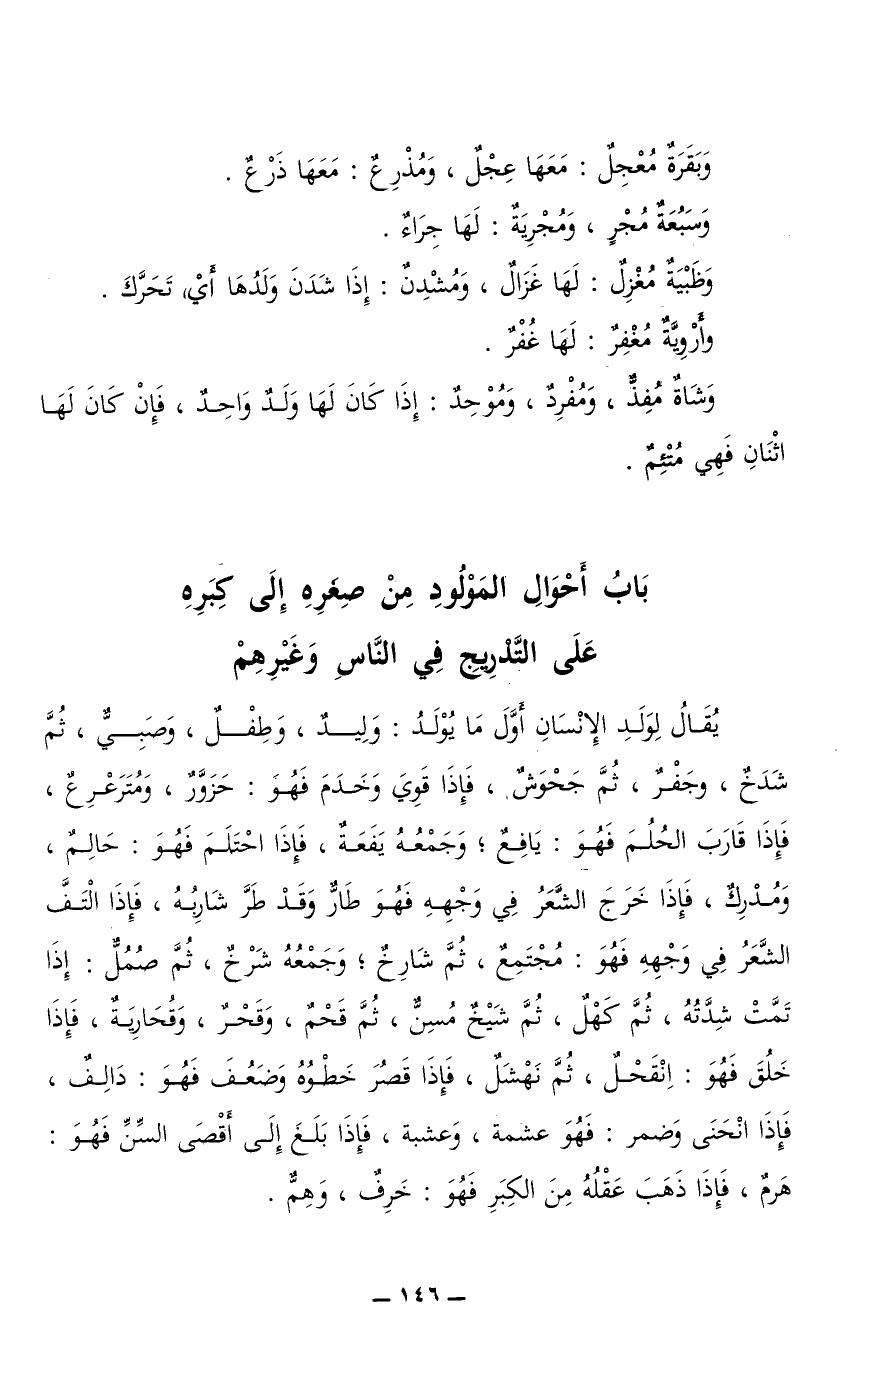 وَبَقَرَةٌ مُعْجِلٌ : مَعَهَا عِجْلٌ ، وَمُذْرِعٌ : مَعَهَا ذَرْعٌ .
وَسَبُعَةٌ مُجْرٍ ، وَمُجْرِيَةٌ : لَهَا جِرَاءٌ .
وَظَبْيَةٌ مُغْزِلٌ : لَهَا غَزَالٌ ، وَمُشْدِنٌ : إِذَا شَدَنَ وَلَدُهَا أَيْ، تَحَرَّكَ .
وأُرْوِيَّةٌ مُغْفِرٌ : لَهَا غُفْرٌ .
وَشَاةٌ مُفِذٌّ ، وَمُفْرِدٌ ، وَمُوْحِدٌ : إِذَا كَانَ لَهَا وَلَدٌ وَاحِدٌ ، فَإِنْ كَانَ لَهَا
اثْنَانِ فَهِي مُتْئِمٌ .
بَابُ أَحْوَالِ المَوْلُودِ مِنْ صِغَرِهِ إِلَى كِبَرِهِ
عَلَى التَّدْرِيجِ فِي النَّاسِ وَغَيْرِهِمْ
يُقَالُ لِوَلَدِ الإِنْسَانِ أَوَّلَ مَا يُوْلَدُ : وَلِيدٌ ، وَطِفْلٌ ، وَصَبِيٌّ ، ثُمَّ
شَدَخٌ ، وجَفْرٌ ، ثُمَّ جَحْوَشٌ ، فَإِذَا قَوِيَ وَخَدَمَ فَهُوَ : حَزَوَّرٌ ، وَمُتَرَعْرِعٌ ،
فَإِذَا قَارَبَ الحُلُمَ فَهُوَ : يَافِعٌ ؛ وَجَمْعُهُ يَفَعَةٌ ، فَإِذَا احْتَلَمَ فَهُوَ : حَالِمٌ ،
وَمُدْرِكٌ ، فَإِذَا خَرَجَ الشَّعَرُ فِي وَجْهِهِ فَهُوَ طَارٌّ وَقَدْ طَرَّ شَارِبُهُ ، فَإِذَا الْتَفَّ
الشَّعَرُ فِي وَجْهِهِ فَهُوَ : مُجْتَمِعٌ ، ثُمَّ شَارِخٌ ؛ وَجَمْعُهُ شَرْخٌ ، ثُمَّ صُمُلٌّ : إِذَا
تَمَّتْ شِدَّتُهُ ، ثُمَّ كَهْلٌ ، ثُمَّ شَيْخٌ مُسِنٌّ ، ثُمَّ قَحْمٌ ، وَقَحْرٌ ، وَقُحَارِيَةٌ ، فَإِذَا
خَلُقَ فَهُوَ : اِنْقَحْلٌ ، ثُمَّ نَهْشَلٌ ، فَإِذَا قَصُرَ خَطْوُهُ وَضَعُفَ فَهُوَ : دَالِفٌ ،
فَإِذَا انْحَنَى وَضمر : فَهُوَ عشمة ، وَعشبة ، فَإِذَا بَلَغَ إِلَى أَقْصَى السِّنِّ فَهُوَ :
هَرِمٌ ، فَإِذَا ذَهَبَ عَقْلُهُ مِنَ الكِبَرِ فَهُوَ : خَرِفٌ ، وَهِمٌّ .
– ١٤٦ –